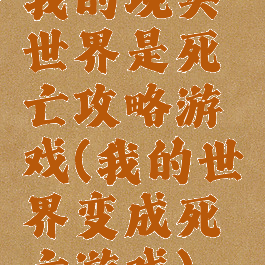 我的现实
世界是死
亡攻略游
戏(我的世
界变成死
亡游戏)